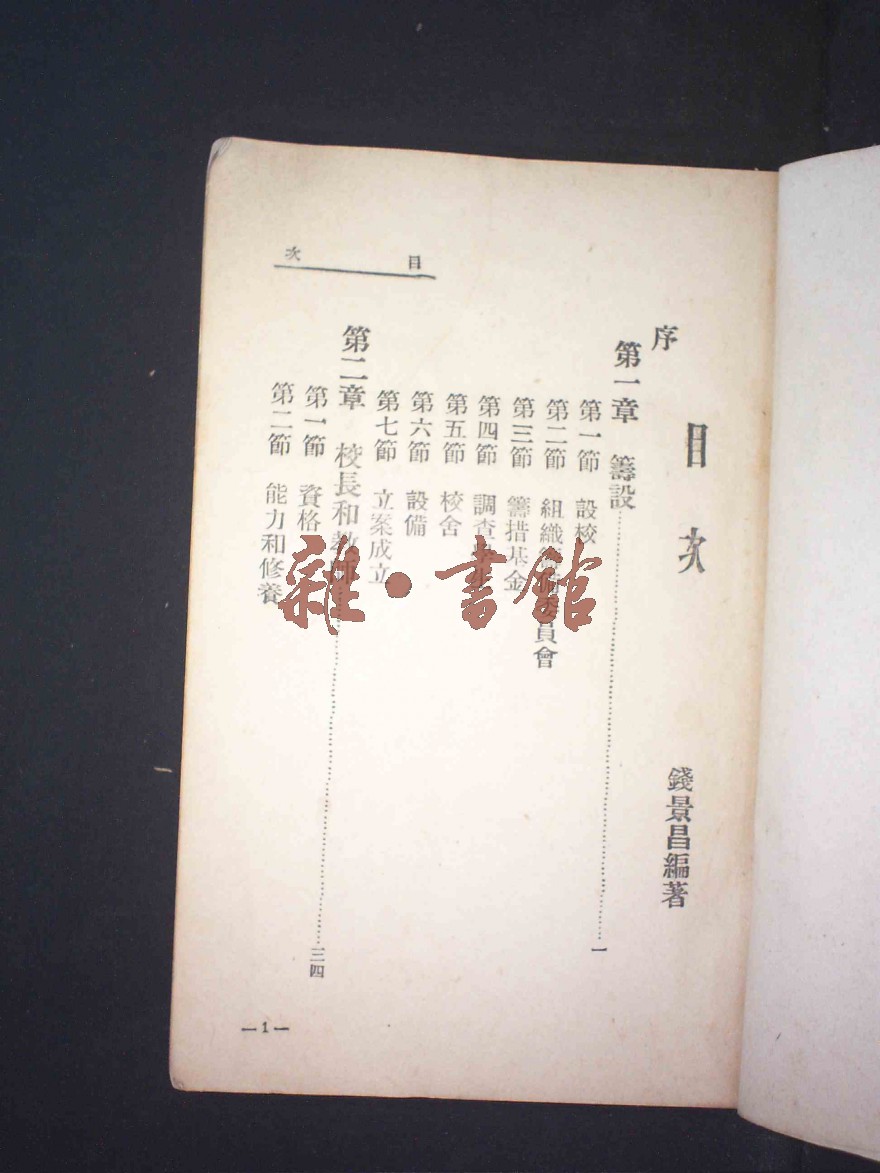 目次
錢景昌編著
序
第一章 籌設……一
第一節 設校
第二節 組織籌備委員會
第三節 籌措基金
第四節 調查學
第五節 校舍
第六節 設備
第七節 立案成立
第二章 校長和教師……三四
第一節 資格
第二節 能力和修養
目次
—1—
雜·書館